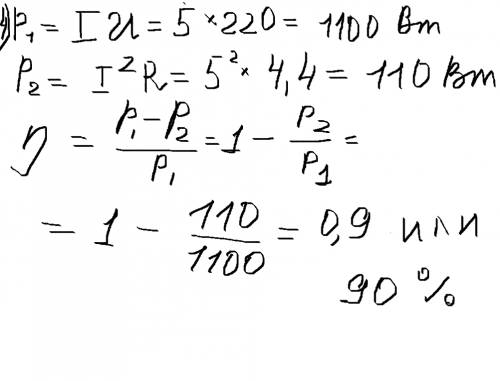 P₁ = IU = 5 × 220 = 1100 Вт
P₂ = I²R = 5² × 4,4 = 110 Вт
η = (P₁ − P₂)/P₁ = 1 − P₂/P₁ =
= 1 − 110/1100 = 0,9 или
90 %